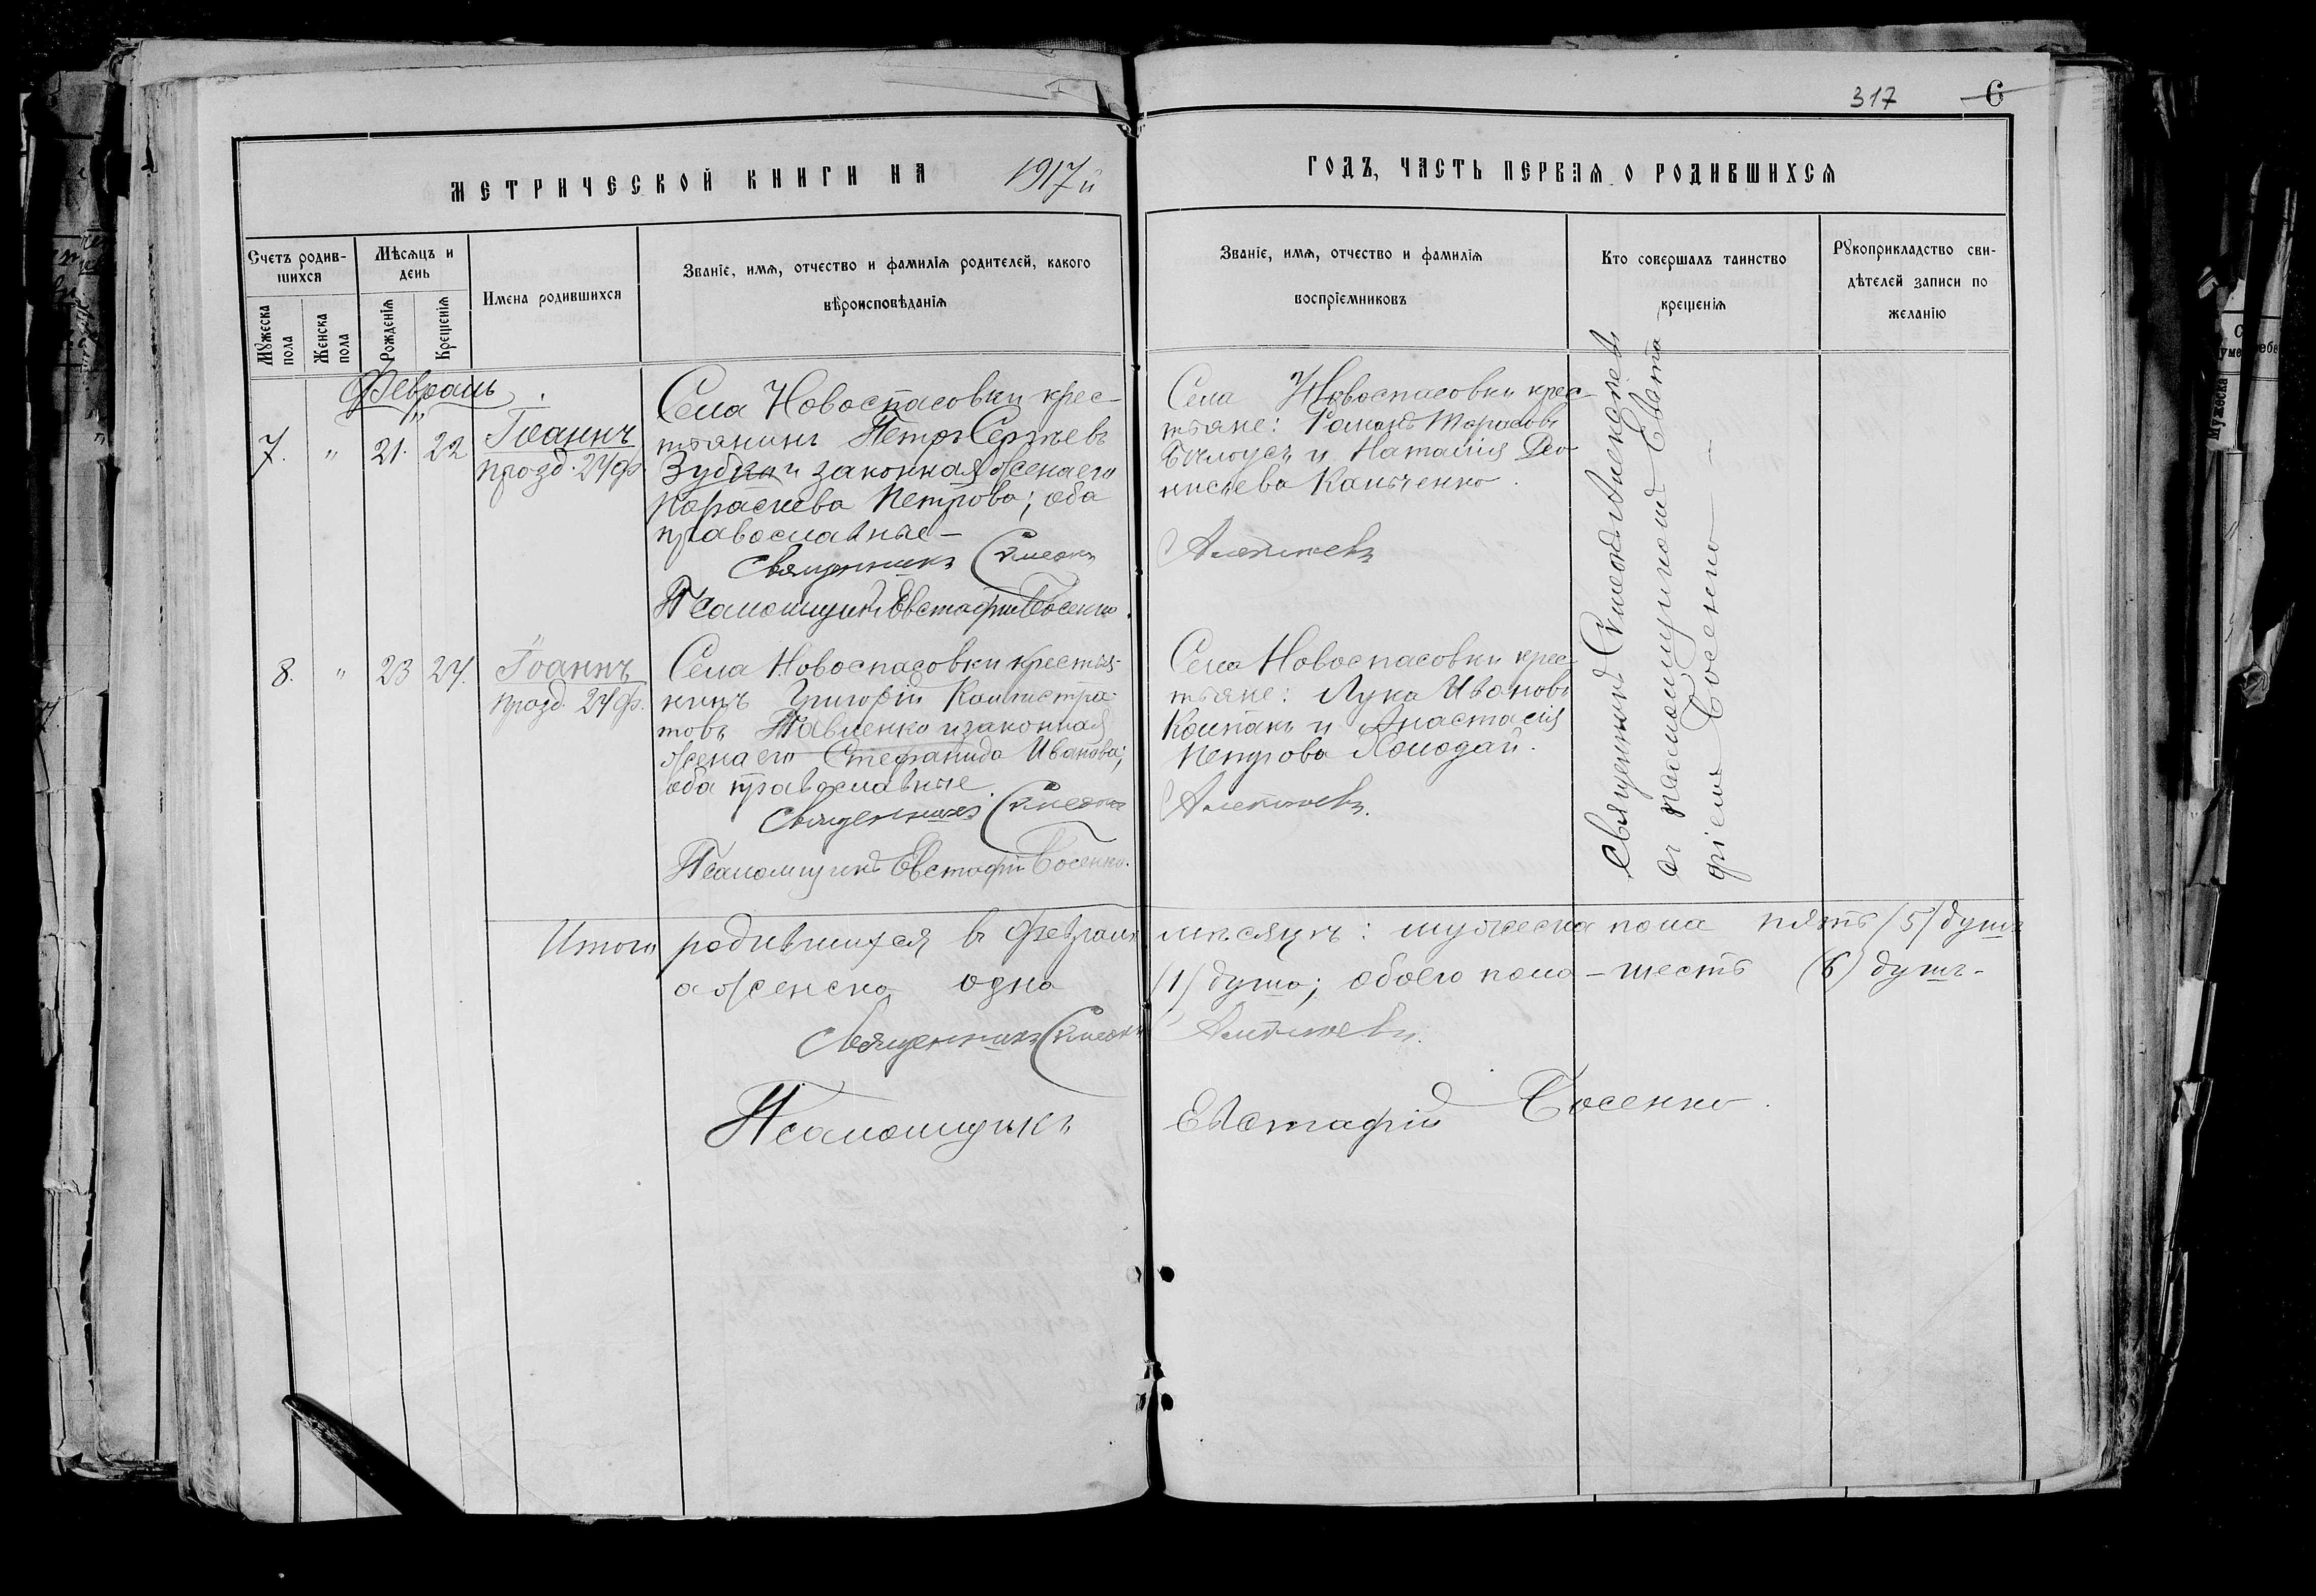 317 6
МЕТРИЧЕСКОЙ КНИГИ НА 1917й ГОДЪ, ЧАСТЬ ПЕРВАЯ О РОДИВШИХСЯ
Счетъ родив-
шихся
Мужеска
пола
Женска
пола
Мѣсяцъ и
день
Рожденія
Крещенія
Имена родившихся
Званіе, имя, отчество и фамилія родителей, какого
вѣроисповѣданія
Званіе, имя, отчество и фамилія
воспріемниковъ
Кто совершалъ таинство
крещенія
Рукоприкладство сви-
дѣтелей записи по
желанію
Февраль
7. " 21. 22
Іоаннъ
празд. 24 ф.
Села Новоспасовки крес-
тьянинъ Петръ Сергѣевъ
Зубко и законная жена его
Параскева Петрова; оба
православные-
Священникъ Симеонъ
Псаломщикъ Евстафій Босенко.
Села Новоспасовки крес-
тьяне: Романъ Тарасовъ
Билоусъ и Наталія Дио
нисіева Кальченко.
Алексѣевъ
Священникъ Симеонъ Алексѣевъ
съ псаломщикомъ Евста
фіемъ Босенко
8. " 23 24.
Іоаннъ
празд. 24 ф.
Села Новоспасовки крестья-
нинъ Григорій Каллистра-
товъ Павленко и законная
жена его Стефанида Иванова;
оба православные.
Священникъ Симеонъ
Псаломщикъ Евстафій Босенко.
Села Новоспасовки крес-
тьяне: Лука Ивановъ
Колпакъ и Анастасія
Петрова Холодай.
Алексѣевъ.
Итого родившихся въ Февралѣ мѣсяцѣ: мужеска пола пять /5/ душъ
а женска одна /1/ душа; обоего пола - шесть (6) душъ-
Священникъ Симеонъ Алексѣевъ.
Псаломщикъ Евстафій Босенко.